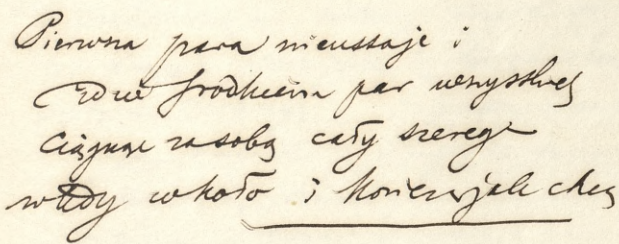 Pierwsza para nieustaje i
idzie środkiem par wszystkich
ciągnąc za sobą cały szereg
wtedy wkoło i kończą jak chcą